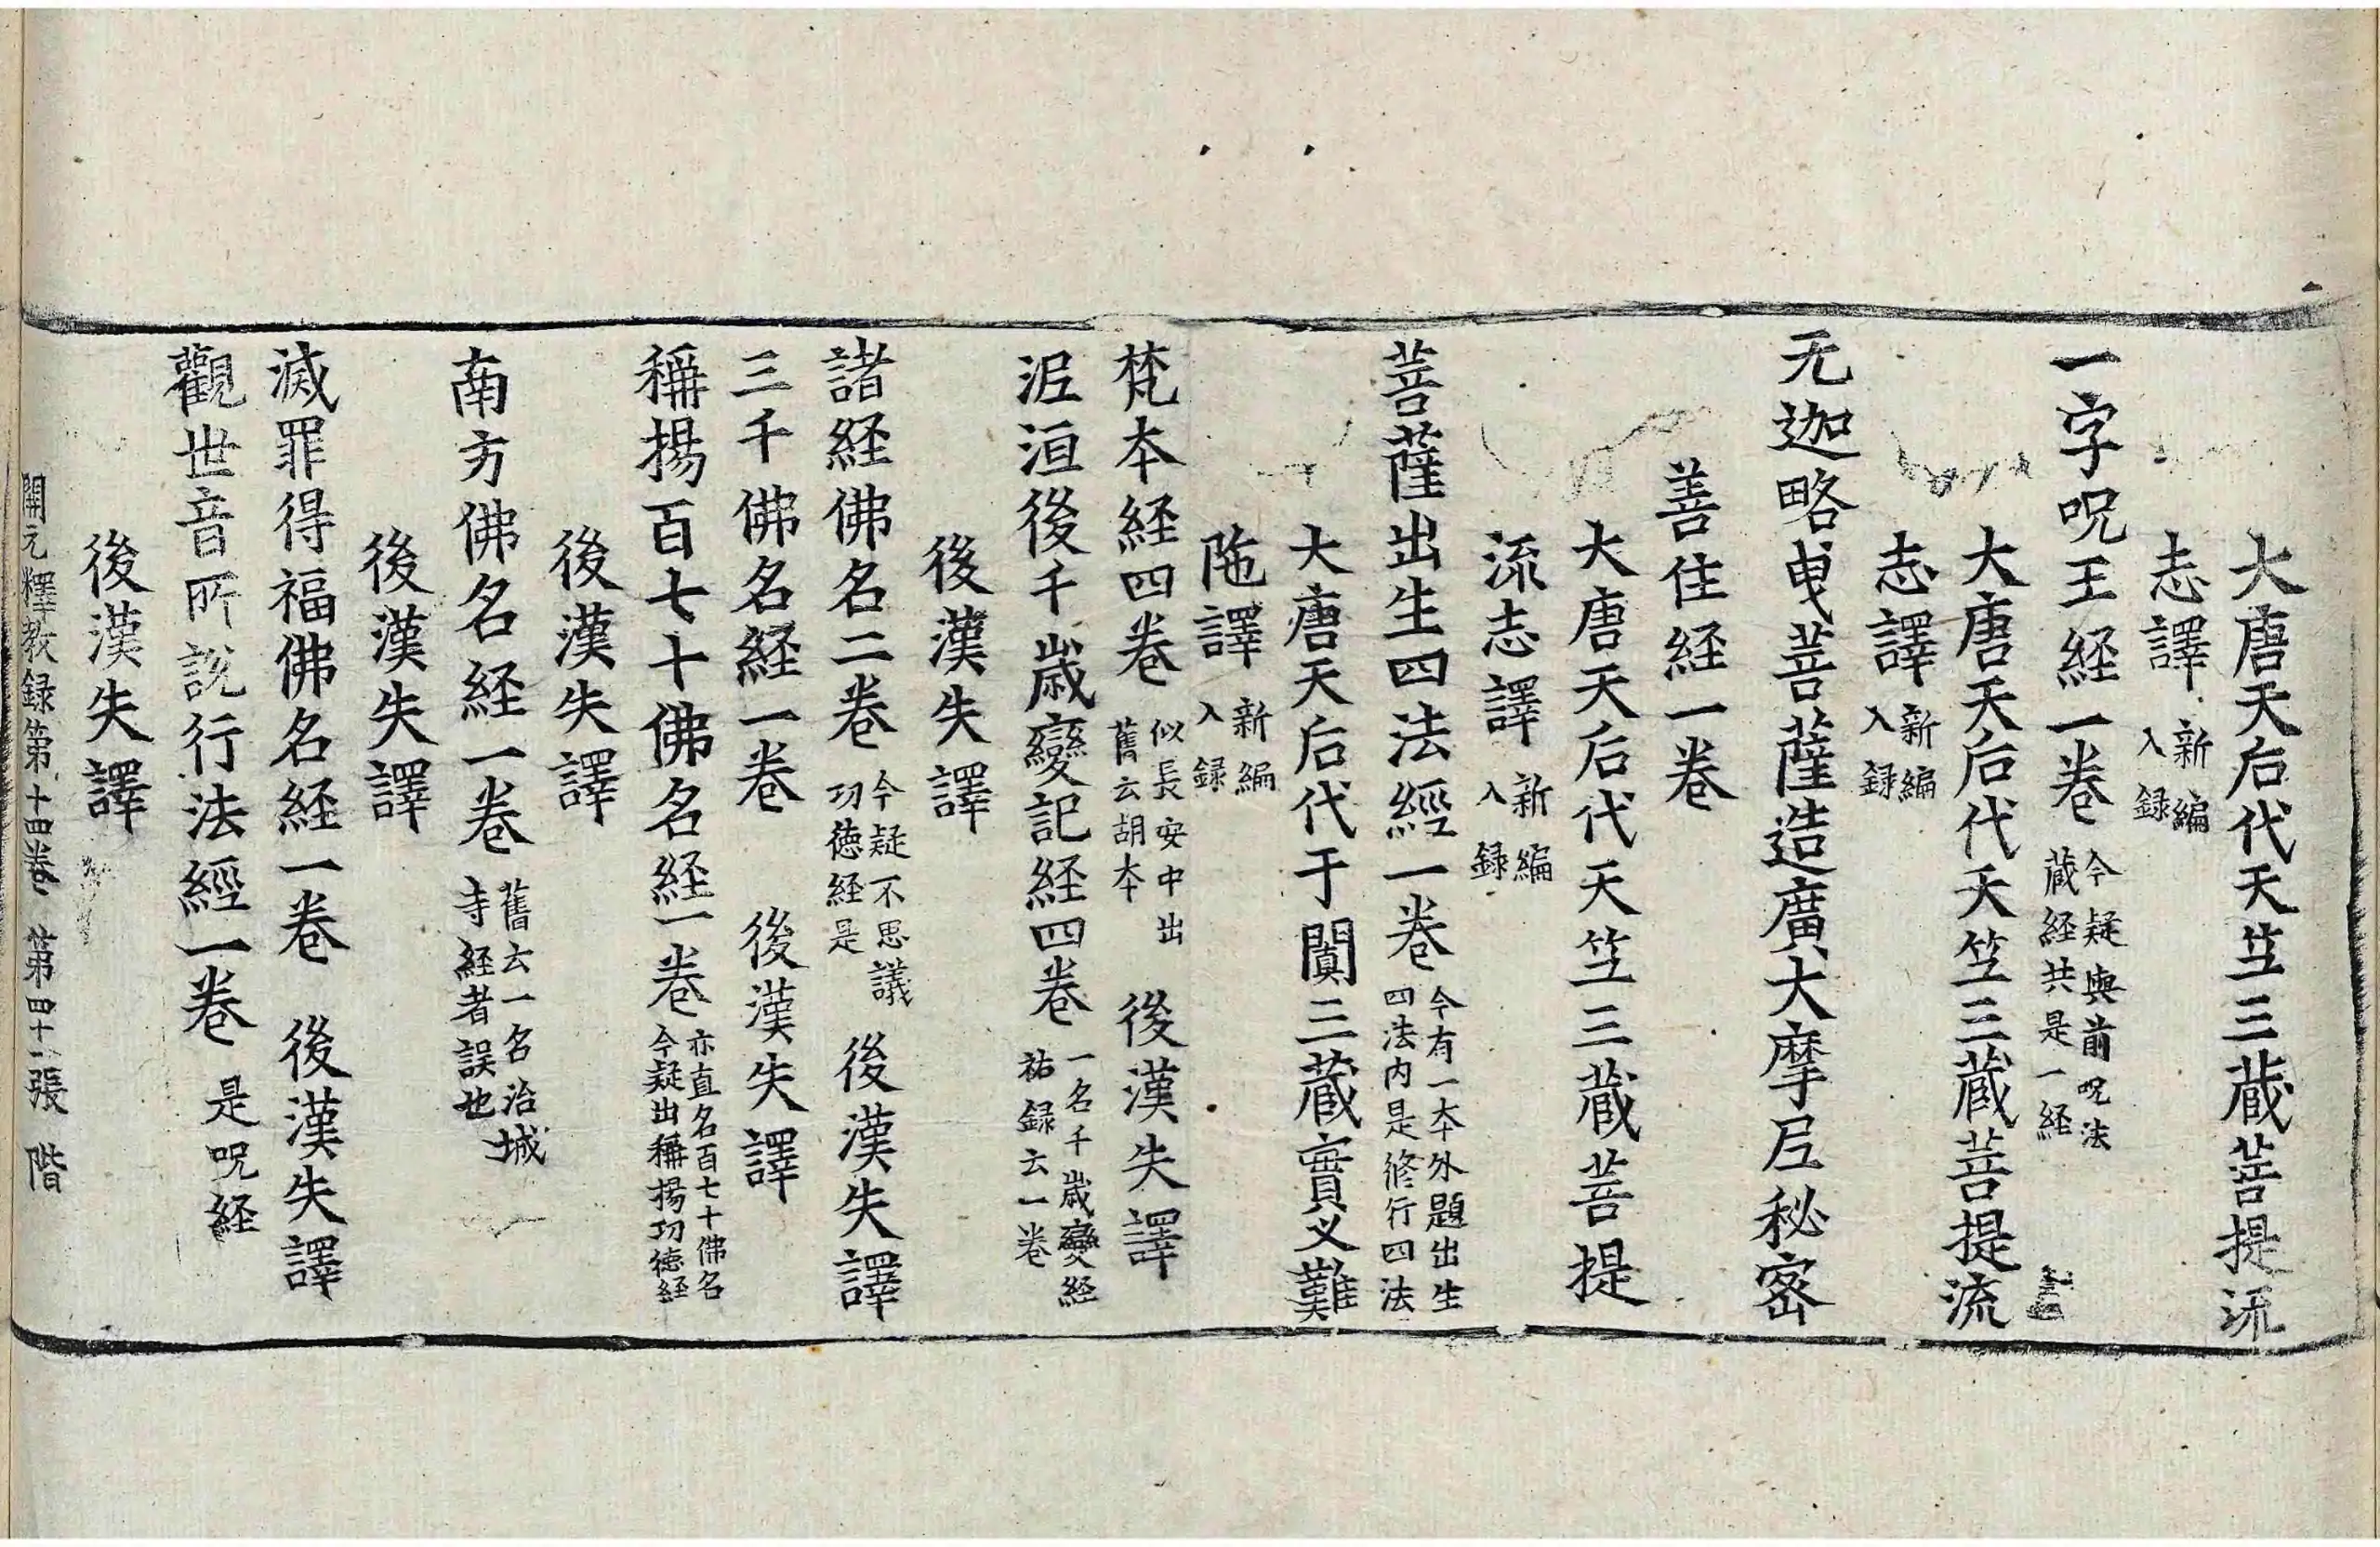 大唐天后代天竺三蔵菩提流
志譯新編入録
一字呪王経一卷今疑與前呪法蔵経共是一経
大唐天后代天竺三蔵菩提流
志譯新編入録
无迦略曳菩薩造廣大摩尼秘密
善住経一卷
大唐天后代天竺三蔵菩提
流志譯新編入録
菩薩出生四法經一卷今有一本外題出生四法内是修行四法
大唐天后代于闐三蔵實叉難
陁譯新編入録
梵本経四卷似長安中出舊云胡本 後漢失譯
泥洹後千歳變記経四卷一名千歳變経祐録云一卷
後漢失譯
諸経佛名二卷今疑不思議功徳経是 後漢失譯
三千佛名経一卷 後漢失譯
稱揚百七十佛名経一卷亦直名百七十佛名今疑出稱揚功徳経
後漢失譯
南方佛名経一卷舊云一名治城寺経者誤也
後漢失譯
滅罪得福佛名経一卷 後漢失譯
觀世音所説行法經一卷 是呪経
後漢失譯
開元釋教録第十四卷 第四十一張 階